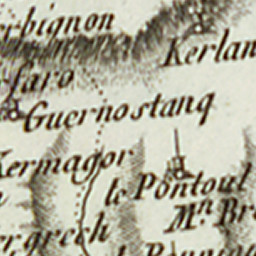 rbignon
Kerlan
faro
Guernostanq
Kermagor
le Pontoul
Mⁿ Bre
ergrech